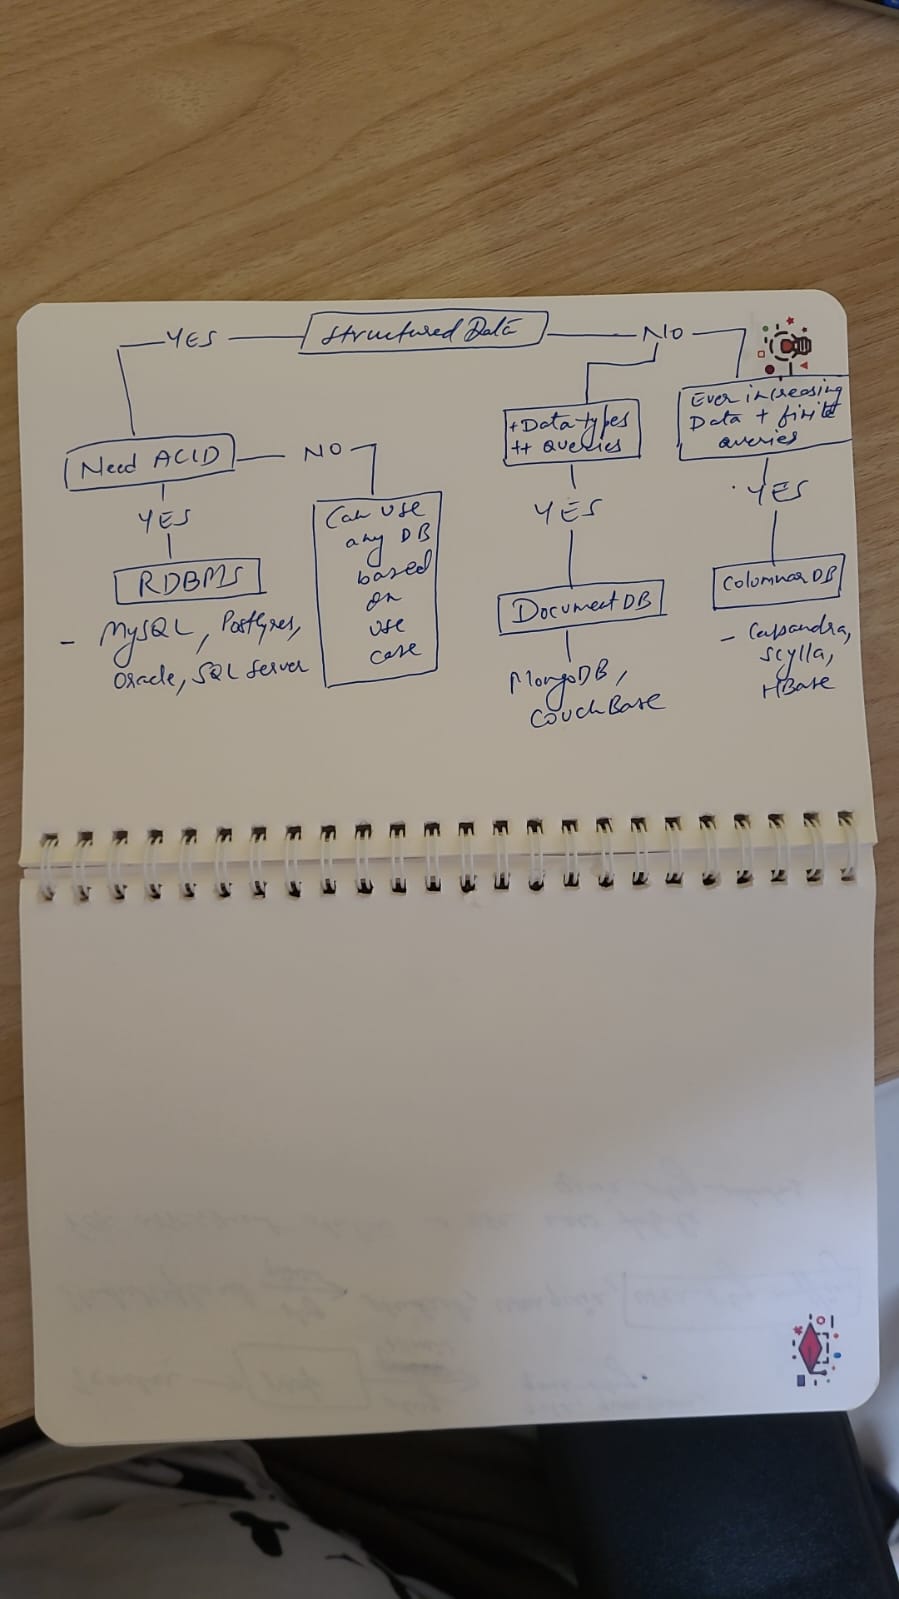 Structured Data
YES
NO
Need ACID
NO
YES
RDBMS
- MySQL, Postgres,
Oracle, SQL Server
Can use
any DB
based
on
use
case
+ Data types
++ queries
YES
Document DB
MongoDB,
CouchBase
Ever increasing
Data + finite
queries
YES
Columnar DB
- Cassandra,
Scylla,
HBase